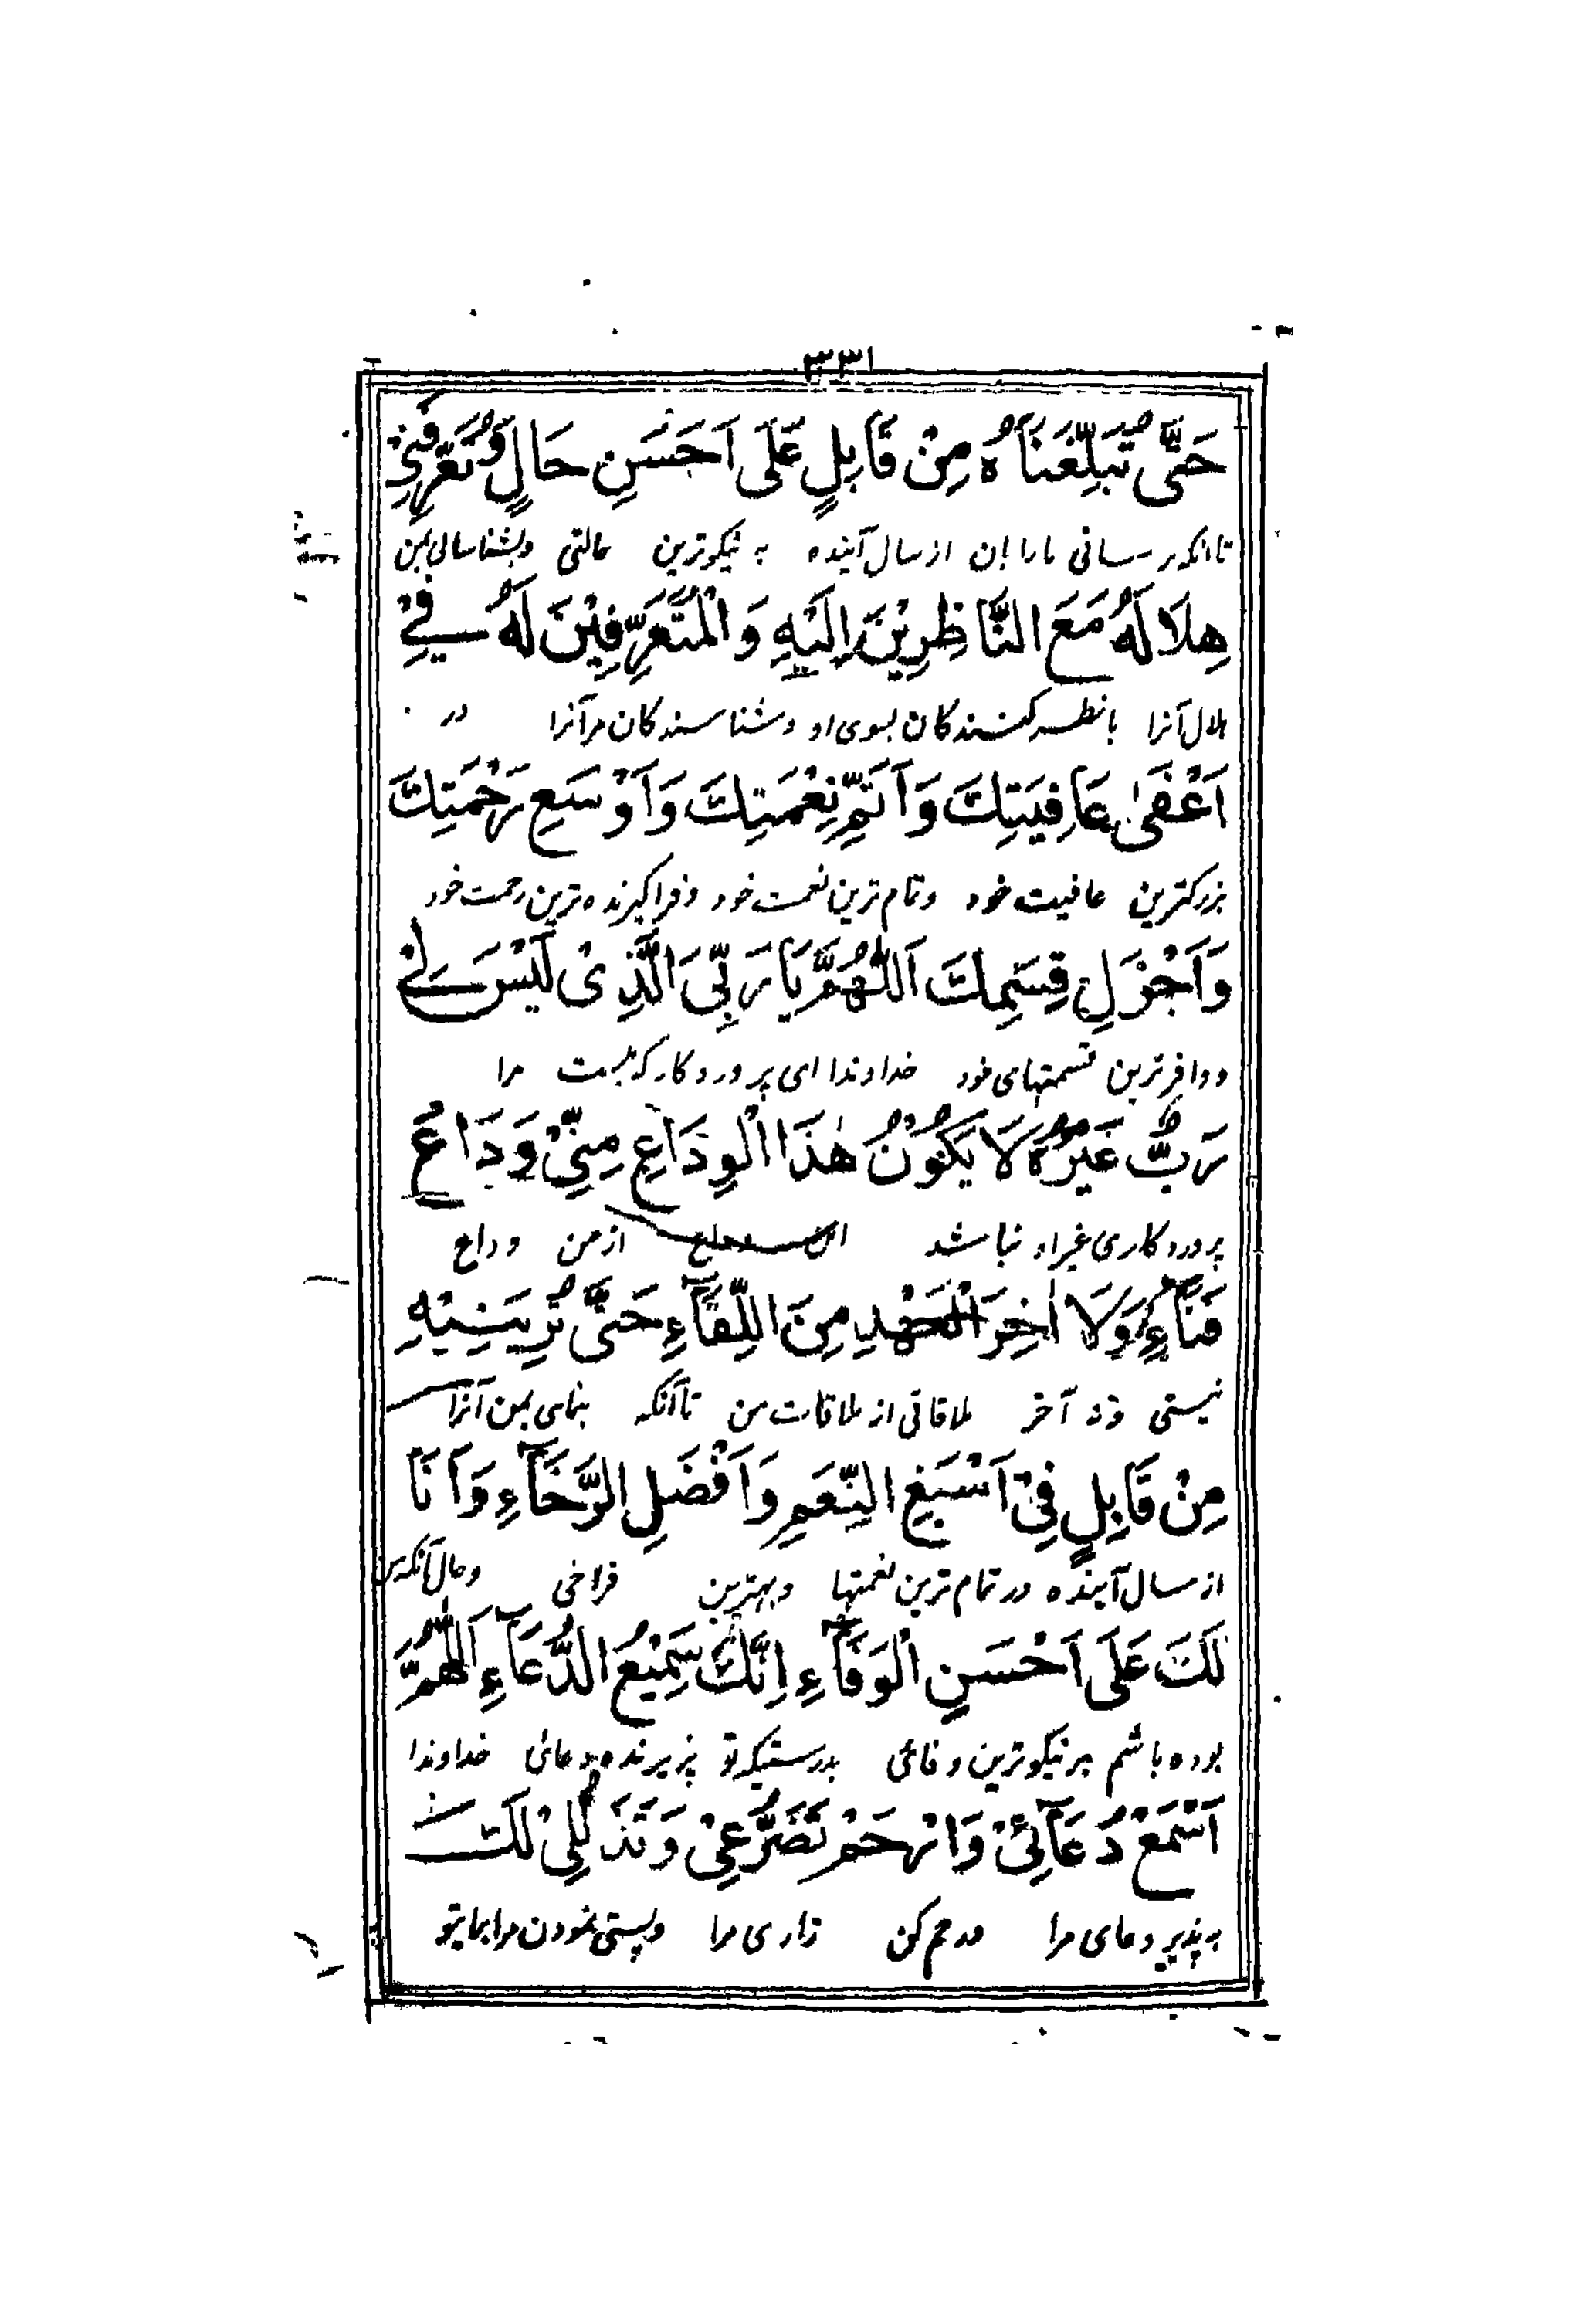 ۳۳۱
حَتّٰى تُبَلِّغَنَاهُ مِنْ قَابِلٍ عَلَى اَحْسَنِ حَالٍ وَتُعَرِّفَنِيْ
تا آنکه رسانی ما را بان از سال آینده به نیکوترین حالتی وبشناسانی بمن
هِلَالَهُ مَعَ النَّاظِرِيْنَ اِلَيْهِ وَالْمُتَعَرِّفِيْنَ لَهُ فِيْ
هلال آنرا با نظر کنندکان بسوی او وشناسندکان مر آنرا در
اَعْفَى عَافِيَتِكَ وَاَتَمِّ نِعْمَتِكَ وَاَوْسَعِ رَحْمَتِكَ
بزرکترین عافیت خود وتمام ترین نعمت خود وفراکیرنده ترین رحمت خود
وَاَجْزَلِ قِسَمِكَ اَللّٰهُمَّ يَا رَبِّيَ الَّذِىْ لَيْسَ لِيْ
ووافرترین قسمتهای خود خداوندا ای پروردکار که نیست مرا
رَبٌّ غَيْرُهُ لَا يَكُوْنُ هٰذَا الْوِدَاعِ مِنِّيْ وَدَاعَ
پروردکاری غیر او نباشد این وداع از من وداع
فَنَاءٍ وَلَا اٰخِرَ الْعَهْدِ مِنَ اللِّقَآءِ حَتّٰى تُرِيَنِيْهِ
نیستی ونه آخر ملاقاتی از ملاقات من تا آنکه بنمای بمن آنرا
مِنْ قَابِلٍ فِيْ اَسْبَغِ النِّعَمِ وَاَفْضَلِ الرَّخَآءِ وَاَنَا
از سال آینده در تمام ترین نعمتها وبهترین فراخی وحال آنکه من
لَكَ عَلَى اَحْسَنِ الْوَفَآءِ اِنَّكَ سَمِيْعُ الدُّعَآءِ اَللّٰهُمَّ
بوده باشم بر نیکوترین وفائی بدرستیکه تو پذیرنده دعائی خداوندا
اَسْمَعْ دُعَآئِيْ وَارْحَمْ تَضَرُّعِيْ وَتَذَلُّلِيْ لَكَ
به پذیر دعای مرا ورحم کن زاری مرا وپستی نمودن مرا